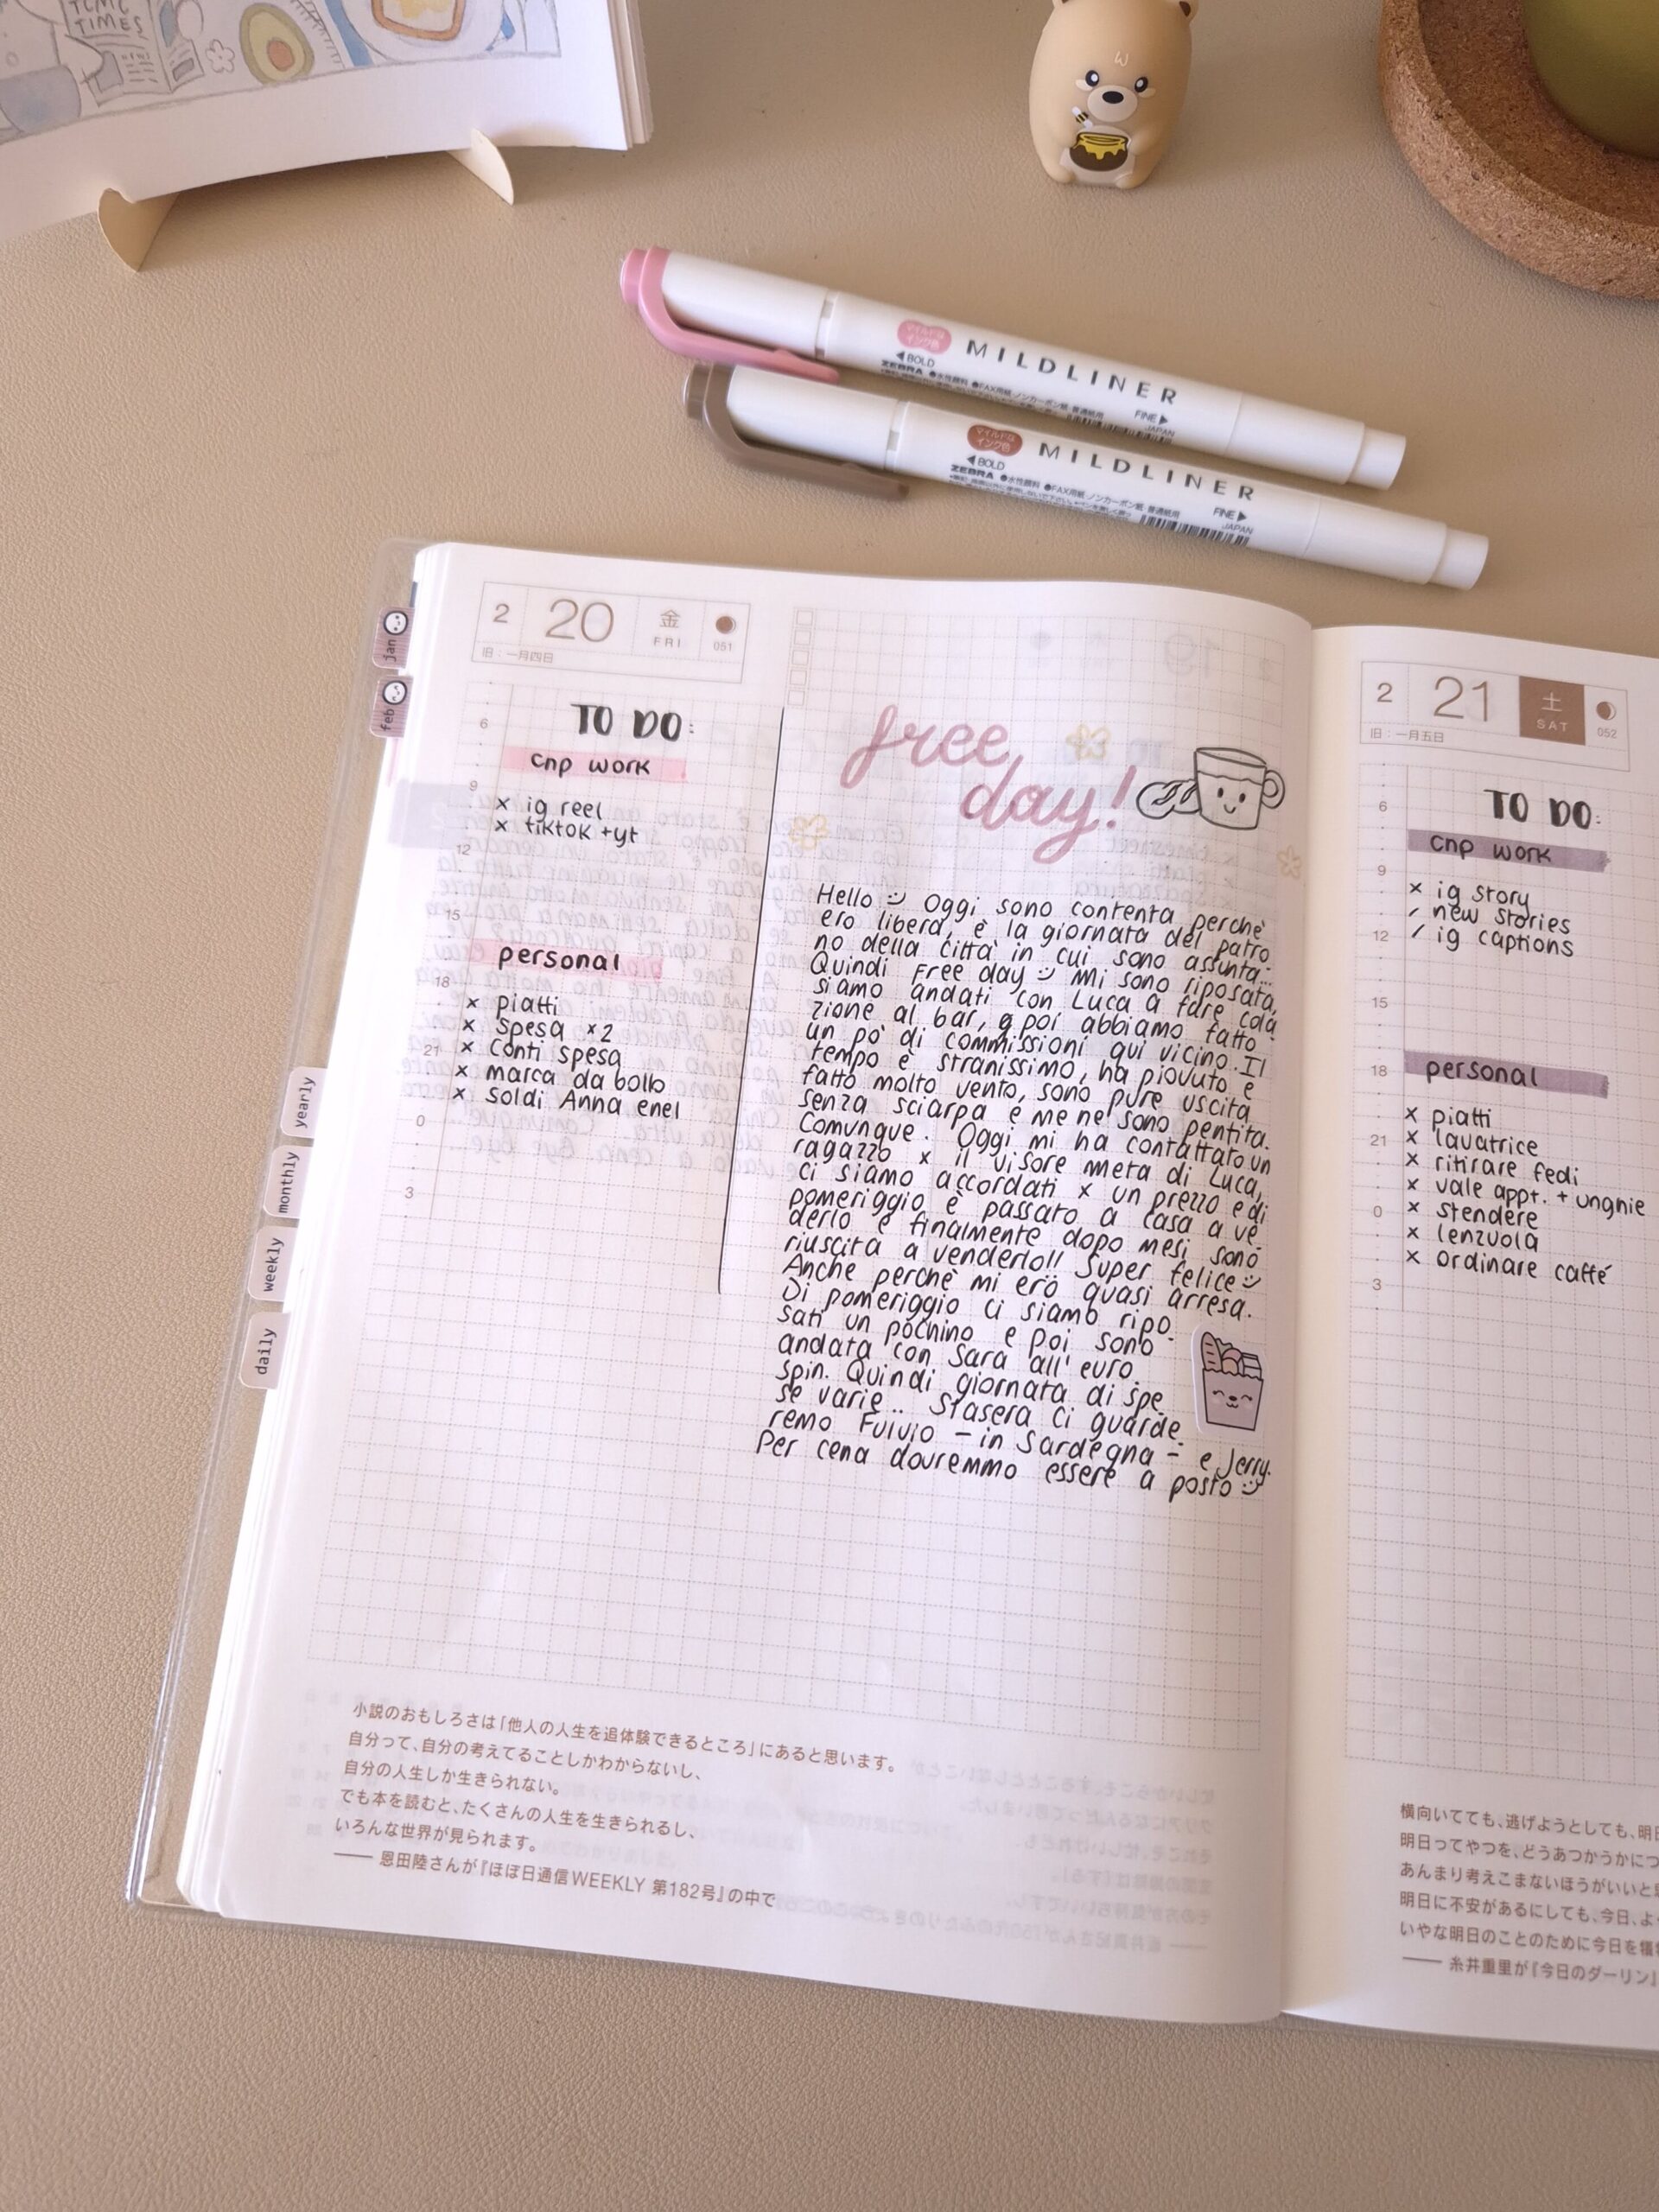 TIMES
マイルドな
インク色
MILDLINER
◀BOLD
ZEBRA ●水性顔料 ●FAX用紙 ノンカーボン紙 普通紙用
FINE▶
JAPAN
マイルドな
インク色
MILDLINER
◀BOLD
ZEBRA ●水性顔料 ●FAX用紙 ノンカーボン紙 普通紙用
FINE▶
JAPAN
jan
feb
yearly
monthly
weekly
daily
2 20 金 FRI 051
旧:一月四日
TO DO:
cnp work
x ig reel
x tiktok +yt
personal
x piatti
x spesa x2
x conti spesa
x marca da bollo
x soldi Anna enel
6
9
12
15
18
21
0
3
free
day!
Hello :) Oggi sono contenta perchè
ero libera, è la giornata del patro
no della città in cui sono assunta...
Quindi Free day :) Mi sono riposata,
siamo andati con Luca a fare cola
zione al bar, e poi abbiamo fatto
un pò di commissioni qui vicino. Il
tempo è stranissimo, ha piovuto e
fatto molto vento, sono pure uscita
senza sciarpa e me ne sono pentita.
Comunque. Oggi mi ha contattato un
ragazzo x il visore meta di Luca,
ci siamo accordati x un prezzo e di
pomeriggio è passato a casa a ve
derlo e finalmente dopo mesi sono
riuscita a venderlo!! Super felice :)
Anche perchè mi ero quasi arresa.
Di pomeriggio ci siamo ripo
sati un pochino e poi sono
andata con Sara all' euro
spin. Quindi giornata di spe
se varie.. Stasera ci guarde
remo Fulvio - in Sardegna - e Jerry.
Per cena dovremmo essere a posto :)
小説のおもしろさは「他人の人生を追体験できるところ」にあると思います。
自分って、自分の考えてることしかわからないし、
自分の人生しか生きられない。
でも本を読むと、たくさんの人生を生きられるし、
いろんな世界が見られます。
―― 恩田陸さんが『ほぼ日通信WEEKLY 第182号』の中で
2 21 土 SAT 052
旧:一月五日
TO DO:
cnp work
x ig story
/ new stories
/ ig captions
personal
x piatti
x lavatrice
x ritirare fedi
x vale appt. + ungnie
x stendere
x lenzuola
x ordinare caffé
6
9
12
15
18
21
0
3
横向いてても、逃げようとしても、明日
明日ってやつを、どうあつかうかにつ
あんまり考えこまないほうがいいと
明日に不安があるにしても、今日、よ
いやな明日のことのために今日を犠
―― 糸井重里が『今日のダーリン』